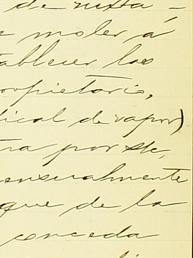 de mixta -
e moler á
tablecer los
ropietario,
dical de vapor)
ra por ste,
ensualmente
que de la
conceda